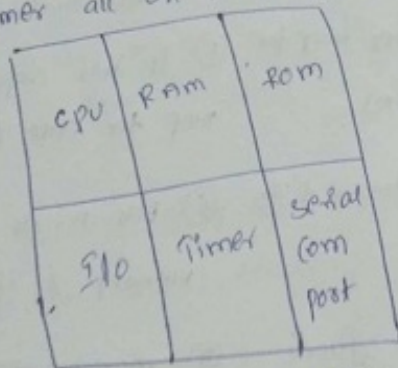 mer all
CPU RAM ROM
I/O Timer serial
com
port